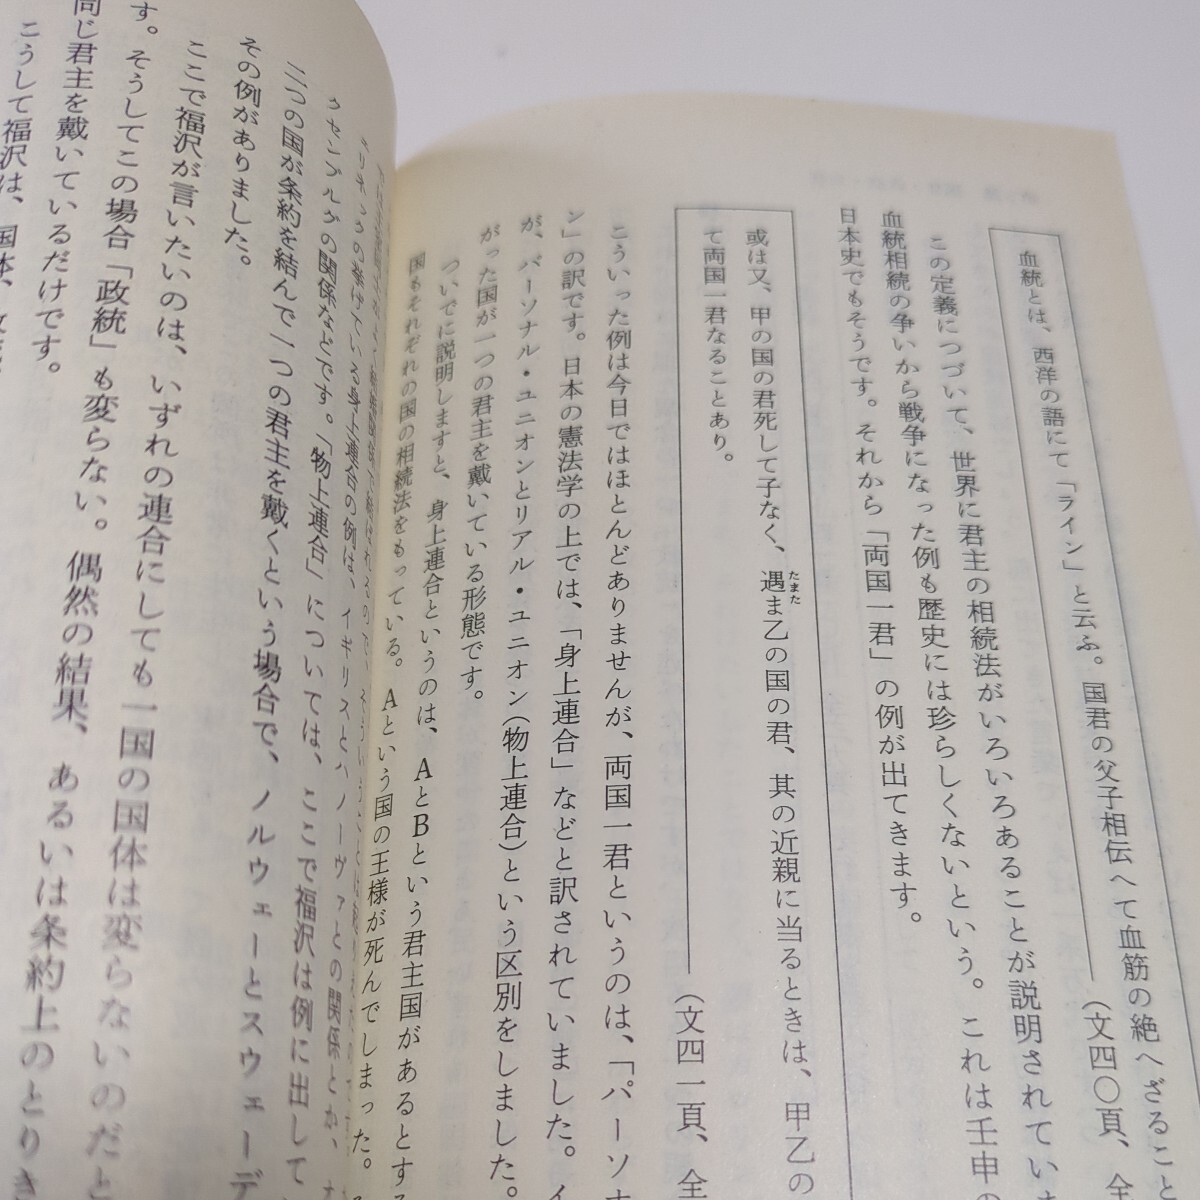 血統とは、西洋の語にて「ライン」と云ふ。国君の父子相伝へて血筋の絶へざること
(文四〇頁、全
この定義につづいて、世界に君主の相続法がいろいろあることが説明されてい
血統相続の争いから戦争になった例も歴史には珍らしくないという。これは壬申の
日本史でもそうです。それから「両国一君」の例が出てきます。
或は又、甲の国の君死して子なく、遇ま乙の国の君、其の近親に当るときは、甲乙の
たまた
て両国一君なることあり。
(文四一頁、全
こういった例は今日ではほとんどありませんが、両国一君というのは、「パーソナ
ン」の訳です。日本の憲法学の上では、「身上連合」などと訳されていました。イ
が、パーソナル・ユニオンとリアル・ユニオン(物上連合)という区別をしました。
がった国が一つの君主を戴いている形態です。
ついでに説明しますと、身上連合というのは、AとBという君主国があるとする
国もそれぞれの国の相続法をもっている。Aという国の王様が死んでしまった。
リネックの挙げている身上連合の例は、イギリスとハノーヴァとの関係とか、
クセンブルグの関係などです。「物上連合」については、ここで福沢は例に出して
二つの国が条約を結んで一つの君主を戴くという場合で、ノルウェーとスウェーデ
その例がありました。
ここで福沢が言いたいのは、いずれの連合にしても一国の国体は変らないのだと
す。そうしてこの場合「政統」も変らない。偶然の結果、あるいは条約上のとりき
同じ君主を戴いているだけです。
こうして福沢は、国体、